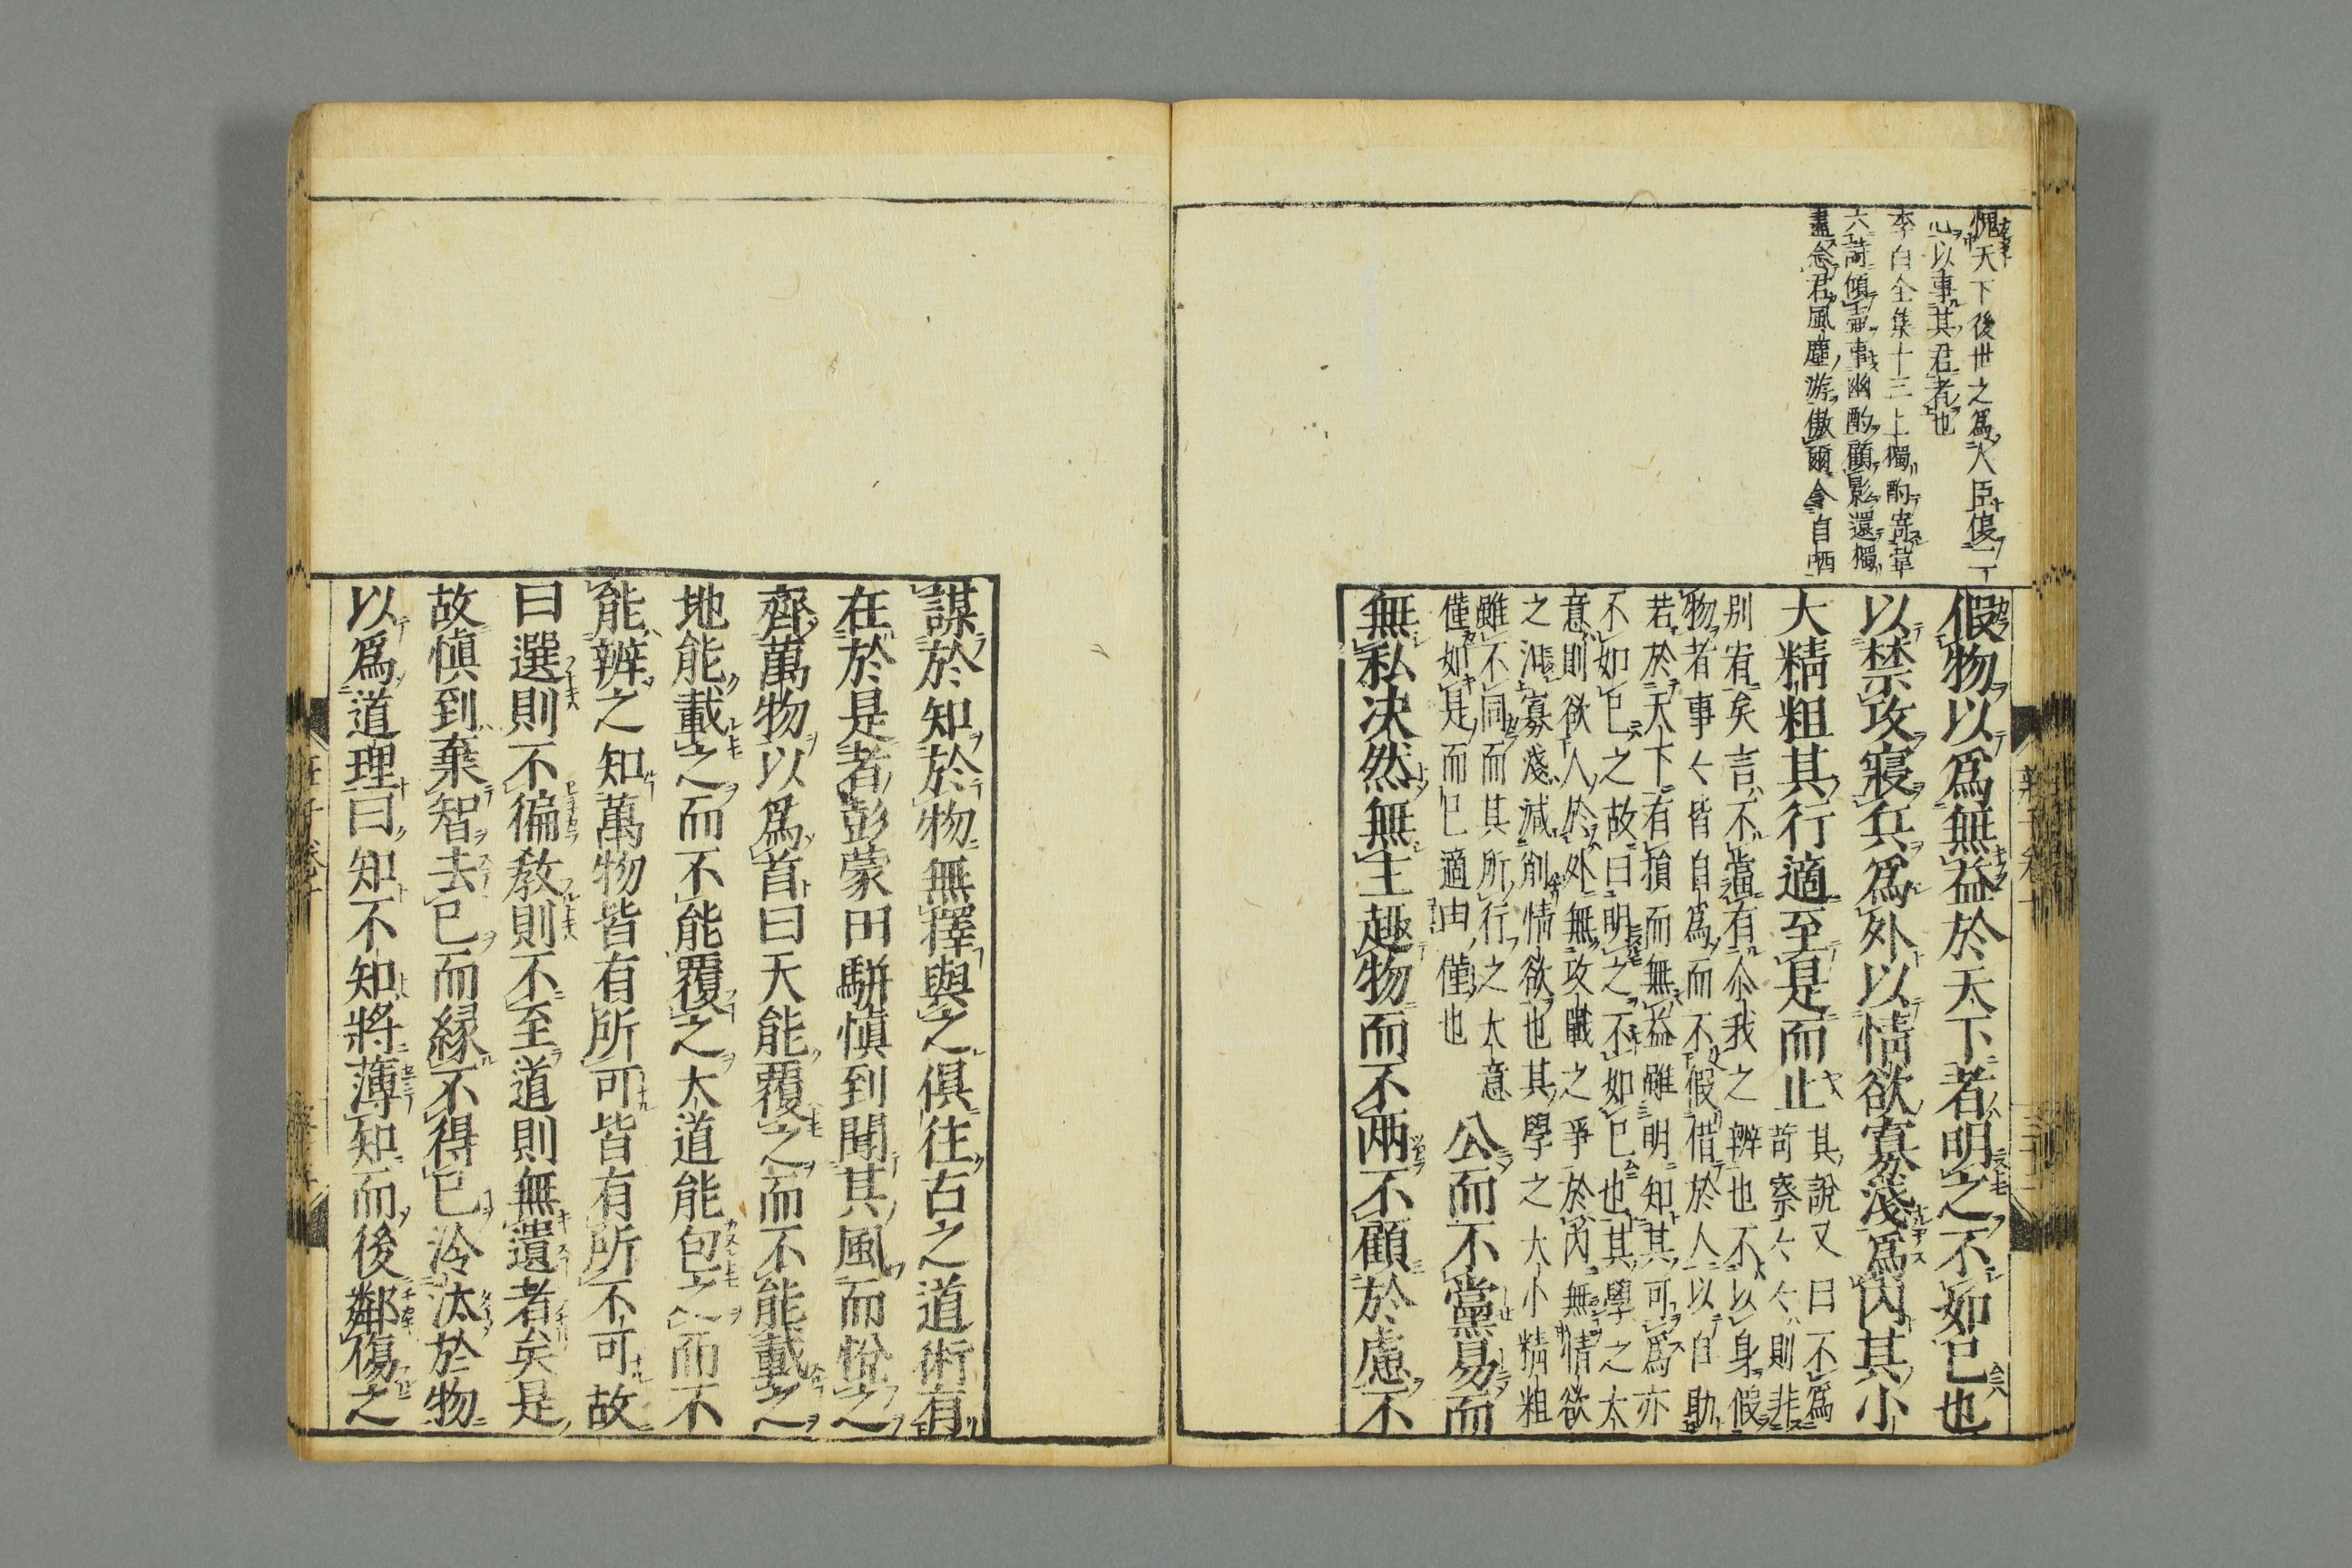 愧天下後世之爲人臣傻二
心以事其君者也
李白全集十三上獨酌寄韋
六詩傾壷事幽酌顧影還獨
盡念君風塵游傲爾令自哂
假物以爲無益於天下者明之不如已也
以禁攻寢兵爲外以情欲寡淺爲内其小
大精粗其行適至是而止
其說又曰不爲
苛察〻〻則非
別宥矣言不當有尒我之辨也不以身假
物者事〻皆自爲而不假借於人以自助
若於天下有損而無益雖明知其可爲亦
不如已之故曰明之不如已也其學之大
意則欲人於外無攻戰之爭於内無情欲
之漲寡淺減削情欲也其學之大小精粗
雖不同而其所行之大意
僅如是而已適由僅也
公而不黨易而
無私决然無主趣物而不兩不顧於慮不
謀於知於物無擇與之俱往古之道術有
在於是者彭蒙田駢愼到聞其風而悅之
齊萬物以爲首曰天能覆之而不能載之
地能載之而不能覆之大道能包之而不
能辨之知萬物皆有所可皆有所不可故
曰選則不徧教則不至道則無遺者矣是
故愼到棄智去已而緣不得已泠汰於物
以爲道理曰知不知將薄知而後鄰傷之